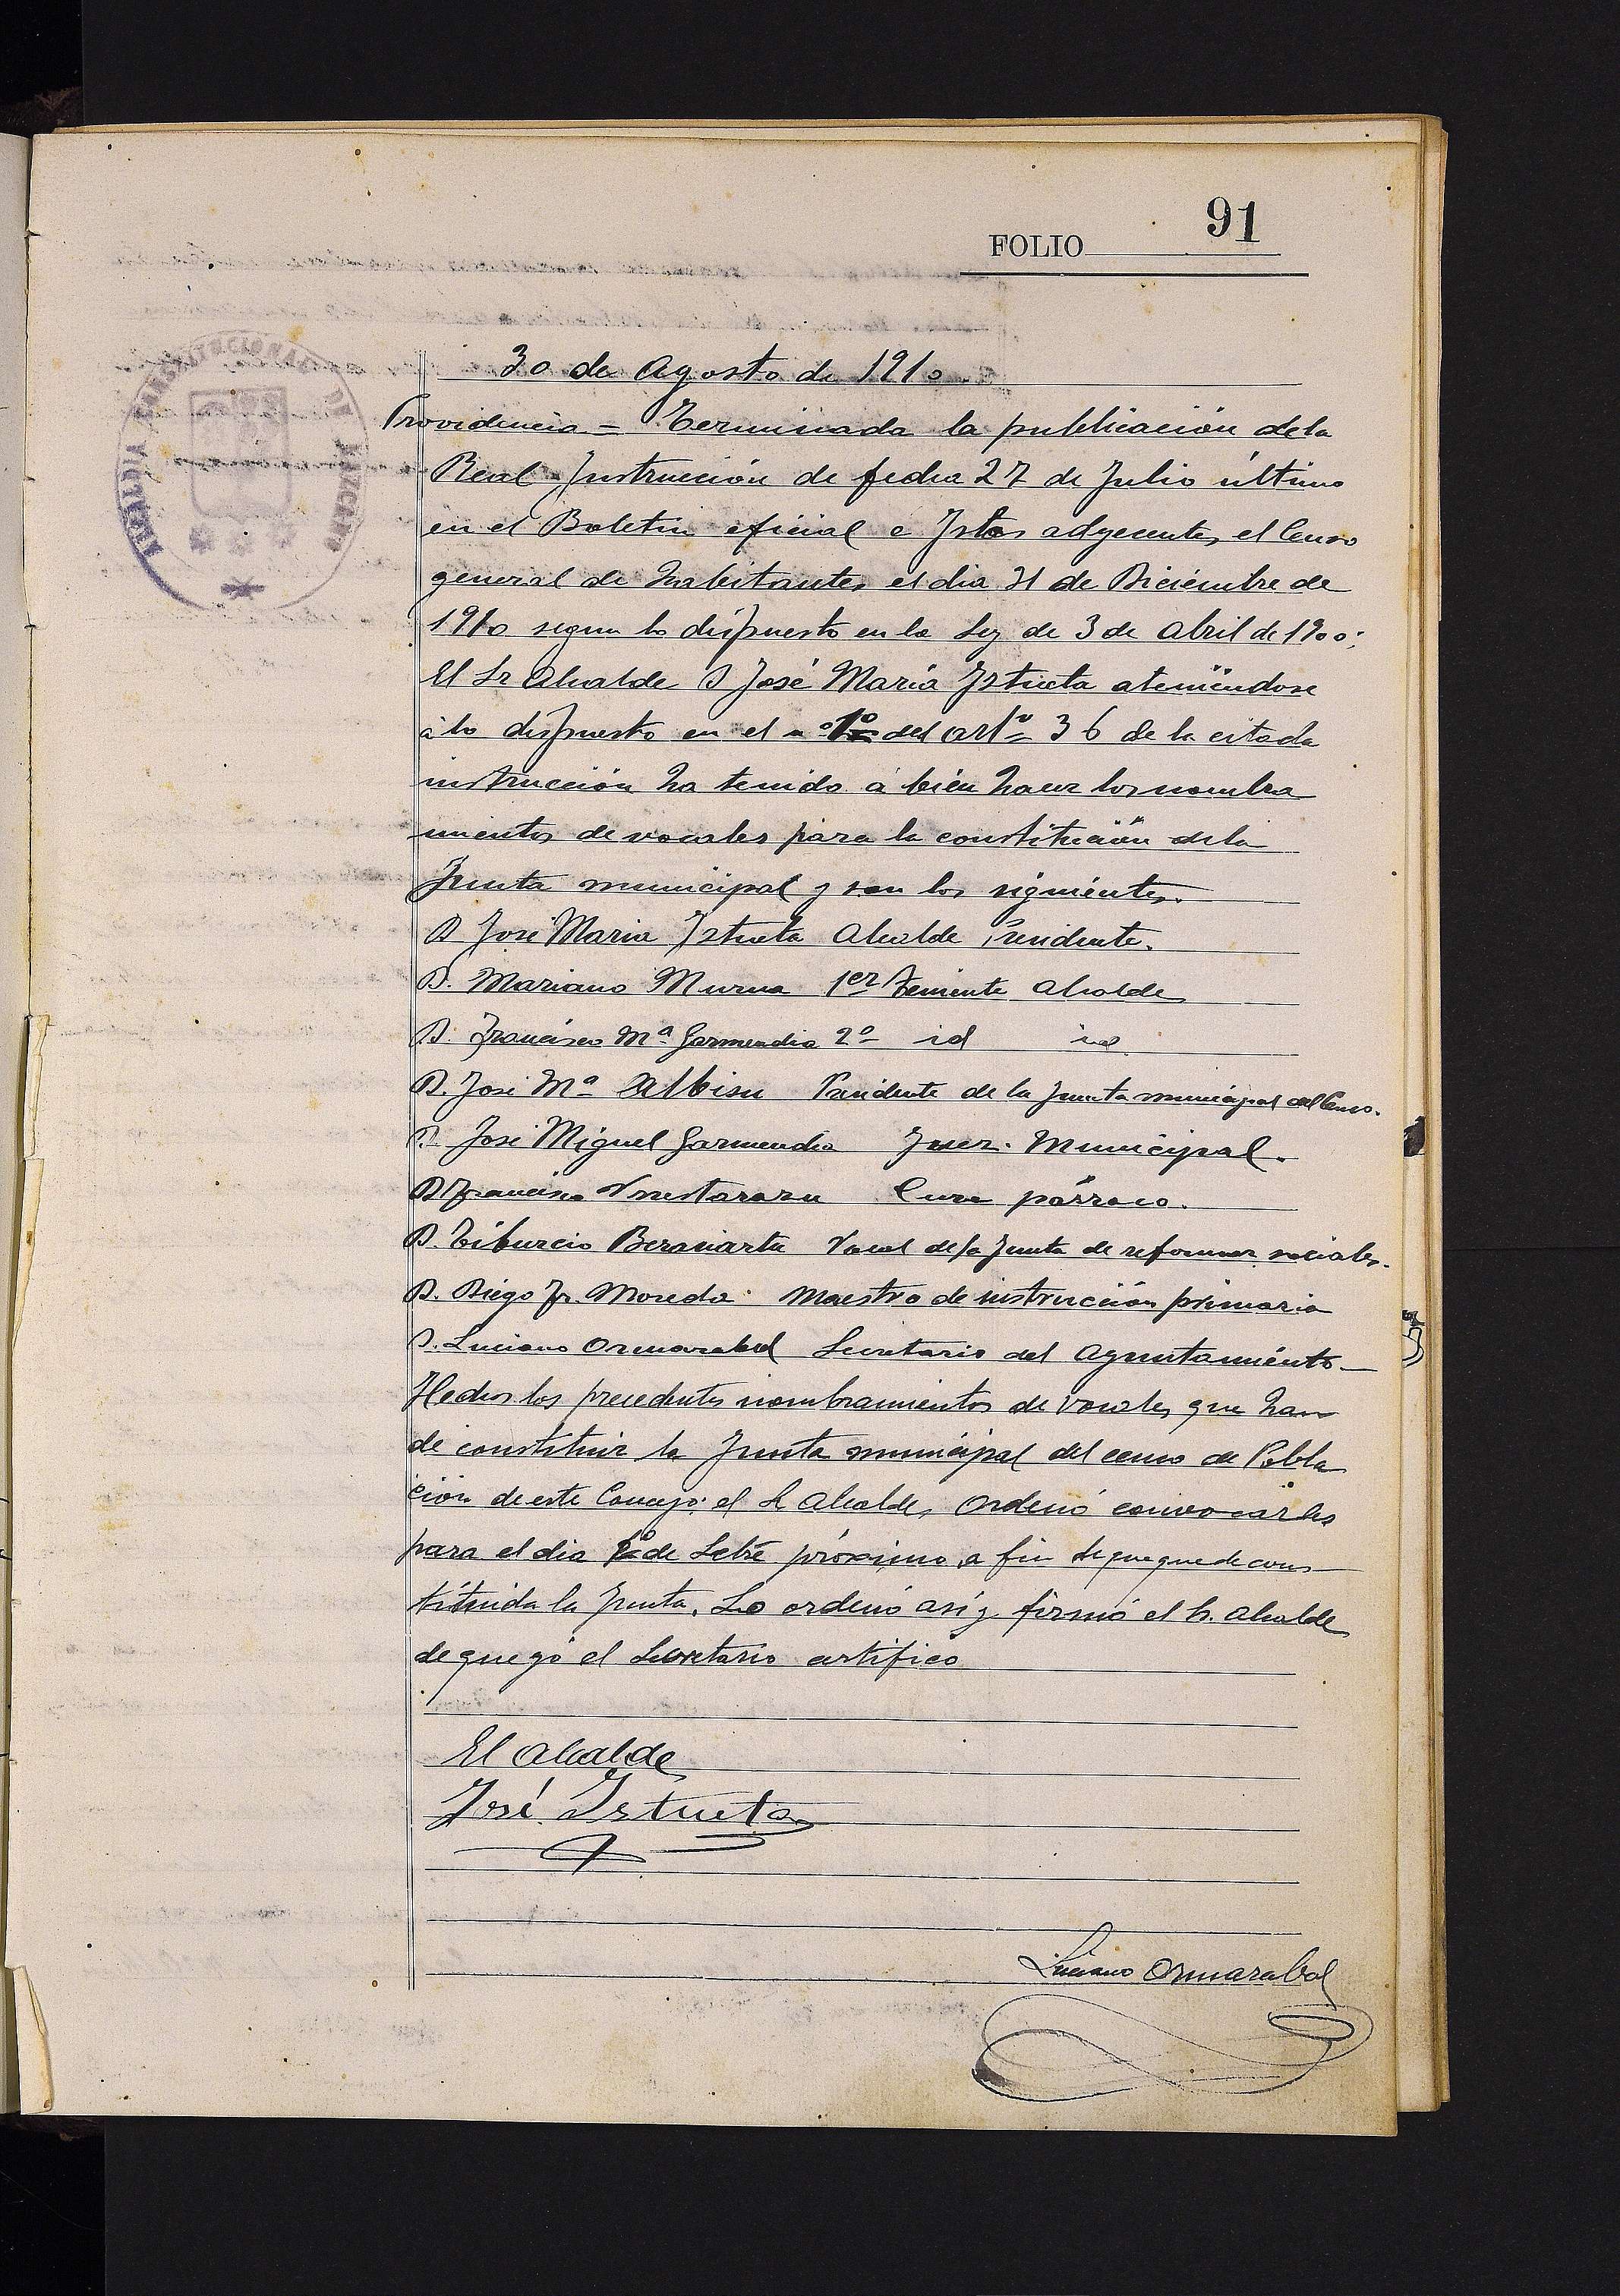 91
FOLIO
ALCALDIA CONSTITUCIONAL DE MUZCANO
30 de Agosto de 1910.
Providencia = Terminada la publicación dela
Real Instrucción de fecha 27 de Julio último
en el Boletin oficial e Islas adyecentes el Censo
general de habitantes el dia 31 de Diciembre de
1910 segun lo dispuesto en la Ley de 3 de Abril de 1900;
El Sr Alcalde D José Maria Iztueta ateniéndose
á lo dispuesto en el nº 1º del artº 36 de la citada
instrucción ha tenido á bien hacer los nombra
mientos de vocales para la constitución dela
Junta municipal y son los siguientes.
D José Maria Iztueta Alcalde Presidente.
D. Mariano Murua 1er Teniente Alcalde
D. Francisco Mª Garmendia 2º id id
D. José Mª Albisu Presidente de la Junta municipal del Censo.
D. José Miguel Garmendia Juez Municipal.
D Francisco Cura párroco.
D. Tiburcio Berasiartu Vocal dela Junta de reformas sociales.
D. Diego Moreda Maestro de instrucción primaria
D. Luciano Ormazabal Secretario del Ayuntamiento
Hechos los precedentes nombramientos de vocales que han
de constituir la Junta municipal del censo de Pobla
ción de este Concejo; el Sr Alcalde, Ordenó convocarles
para el dia 1º de Setbre próximo a fin de que quede cons
tituida la Junta. Lo ordenó asi y firmó el Sr. Alcalde
de que yo el Secretario certifico
El Alcalde
José Iztueta
Luciano Ormazabal